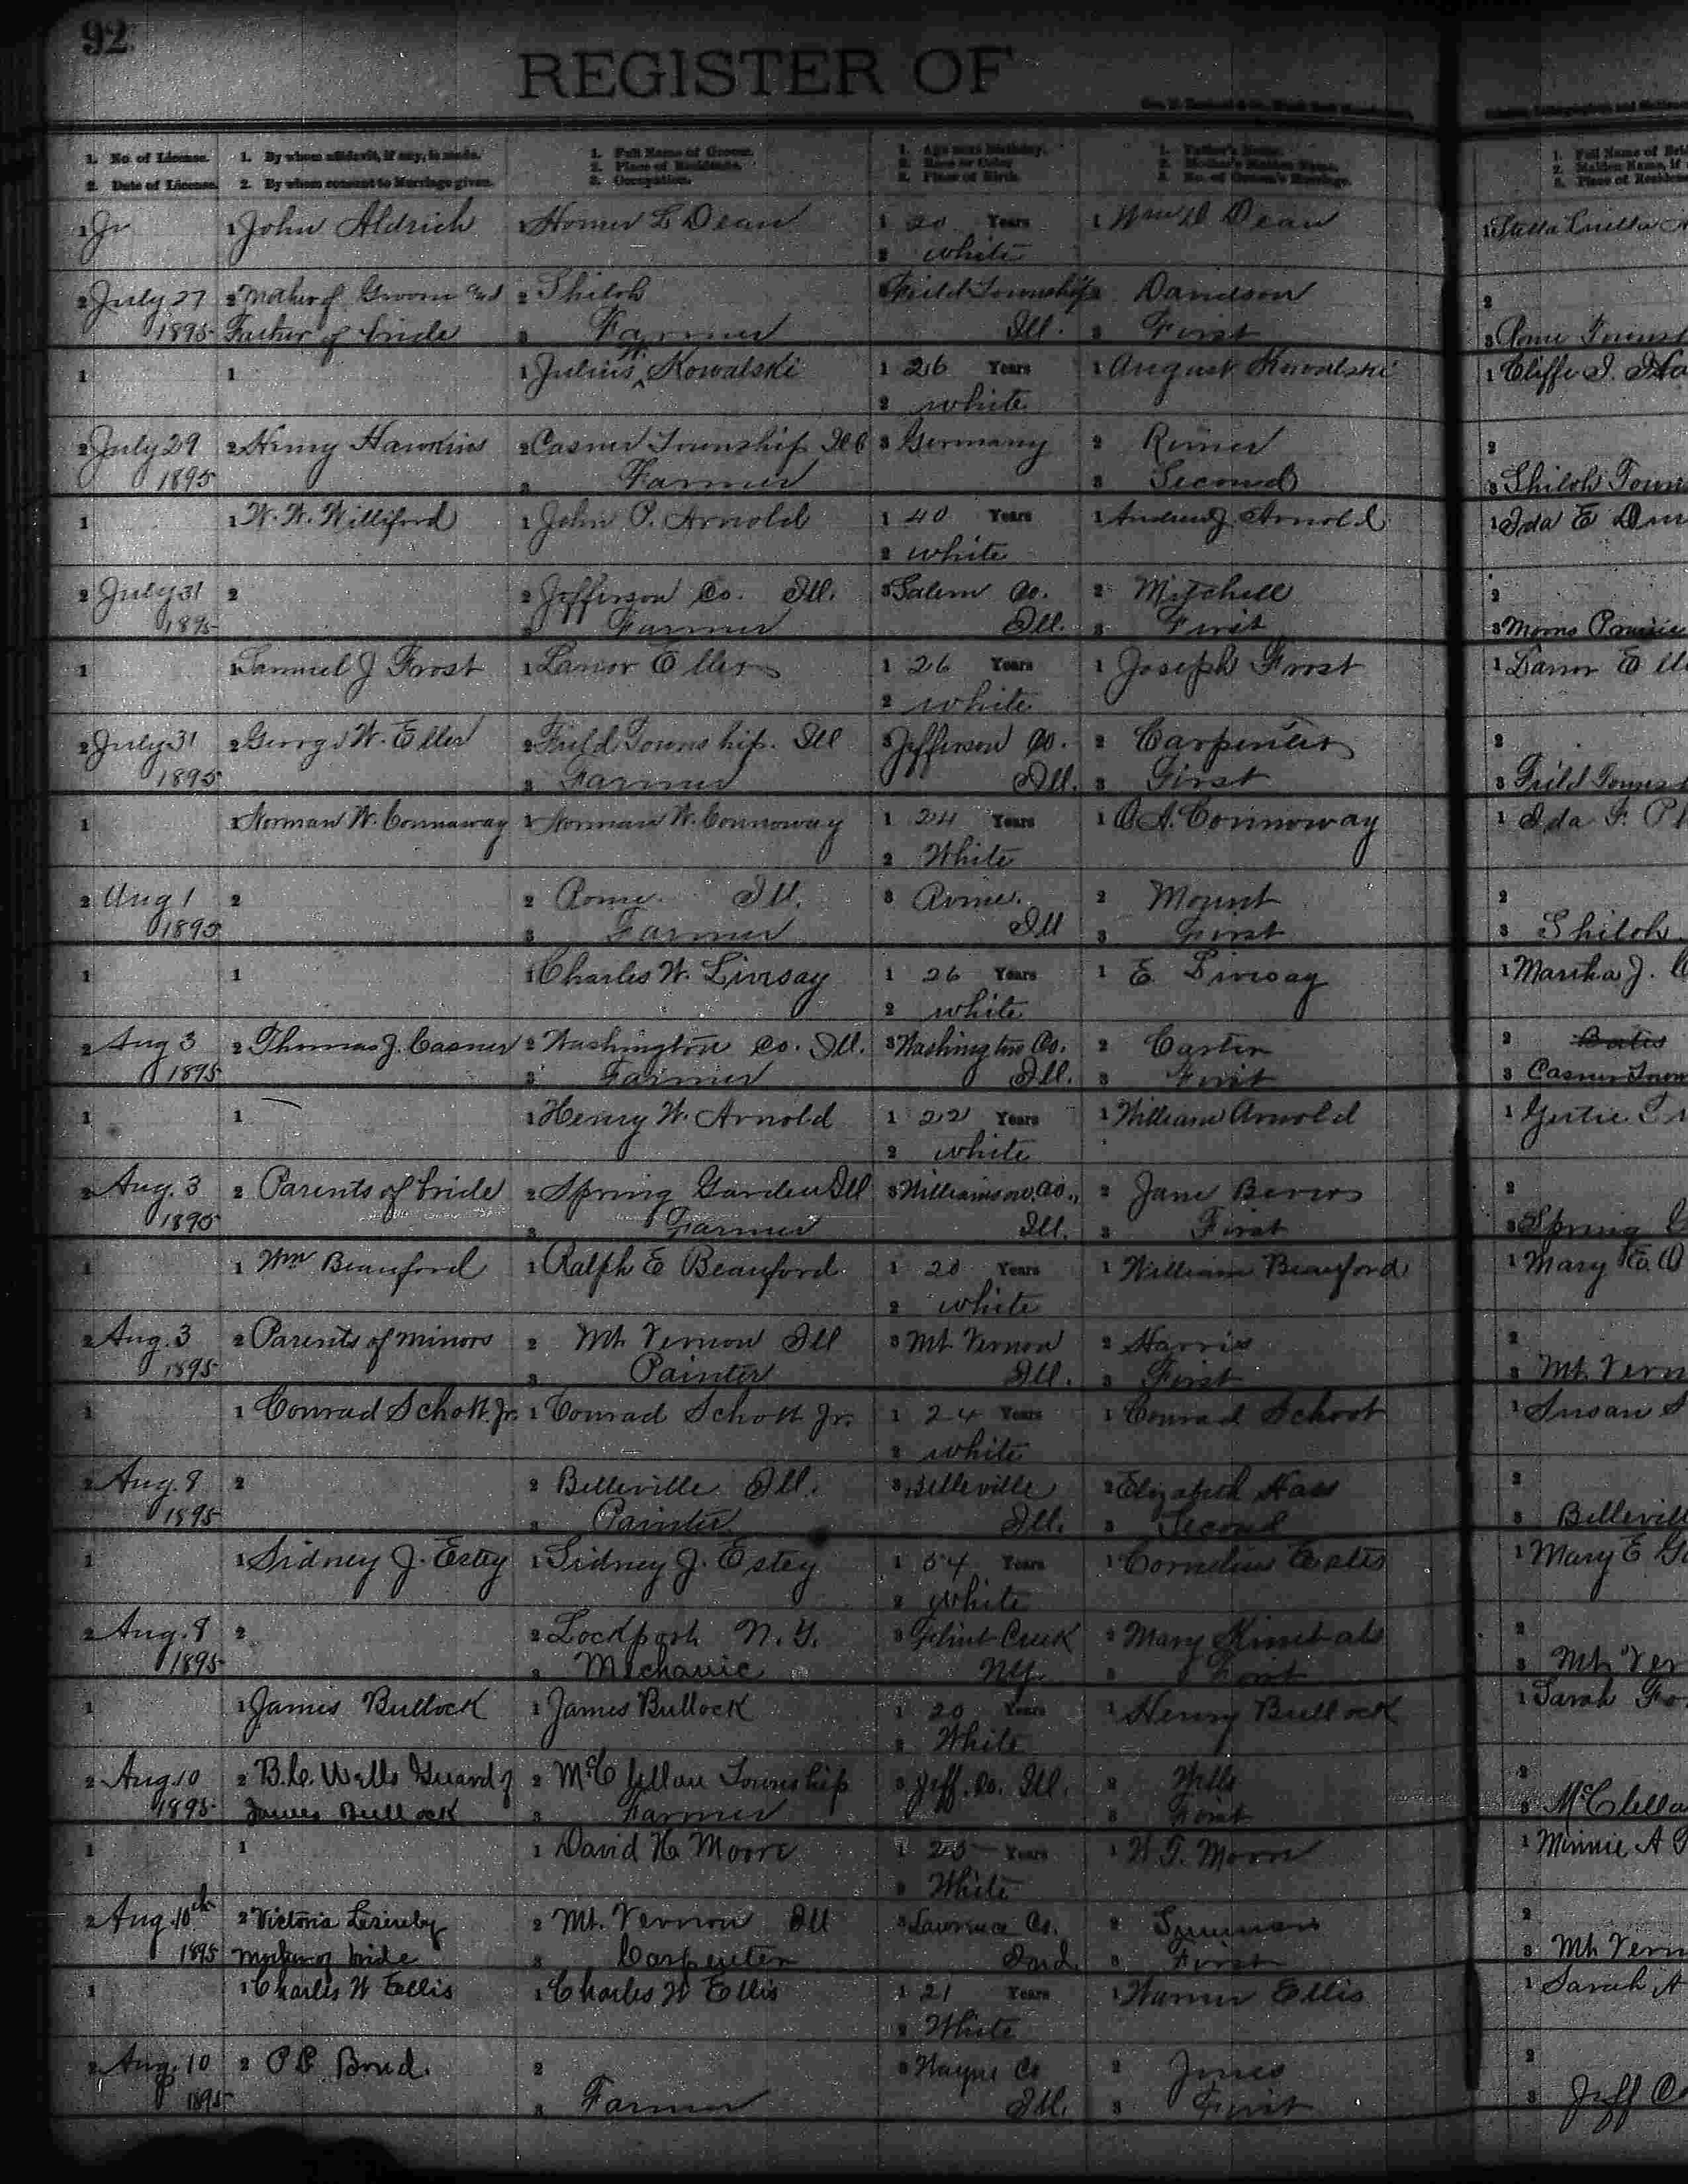 92
REGISTER OF
1. No. of License.
2. Date of License.
1. By whom affidavit, if any, is made.
2. By whom consent to Marriage given.
1. Full Name of Groom.
2. Place of Residence.
3. Occupation.
1. Age next Birthday.
2. Race or Color
3. Place of Birth.
1. Father's Name.
2. Mother's Maiden Name.
3. No. of Groom's Marriage.
1. Full Name of
2. Maiden Name, if
3. Place of
1 Jr 1 John Aldrich 1 Homer L Dean 1 20 Years 1 Wm D Dean 1 Stella Luella
2 white
2 July 27 2 Mother of Groom and 2 Shiloh 3 Field Township 2 Davidson 2
1895 Father of bride 3 Farmer Ill. 3 First 3 Rome Towns
1 1 1 Julius W. Kowalski 1 26 Years 1 August Kowalski 1 Cliffe I. Ha
2 white
2 July 29 2 Henry Hawkins 2 Casner Township Ill 3 Germany 2 Rimer 2
1895 3 Farmer 3 Second 3 Shiloh Town
1 1 W. W. Williford 1 John P. Arnold 1 40 Years 1 Andrew J. Arnold 1 Ida E
2 white
2 July 31 2 2 Jefferson Co. Ill. 3 Salem Co. 2 Mitchell 2
1895 3 Farmer Ill. 3 First 3 Moores Prairie
1 1 Samuel J Frost 1 Lanor Eller 1 26 Years 1 Joseph Frost 1 Lanor E
2 white
2 July 31 2 George W. Eller 2 Field Township. Ill 3 Jefferson Co. 2 Carpenter 2
1895 3 Farmer Ill. 3 First 3 Field Towns
1 1 Norman W. Connaway 1 Norman W. Connoway 1 24 Years 1 A. Connoway 1 Ida F. P
2 White
2 Aug 1 2 2 Rome Ill. 3 Rome. 2 Mount 2
1895 3 Farmer Ill 3 First 3 Shiloh
1 1 1 Charles W. Livesay 1 26 Years 1 E. Livesay 1 Martha J. C
2 white
2 Aug 3 2 Thomas J. Casner 2 Washington Co. Ill. 3 Washington Co. 2 Carter 2 Bates
1895 3 Farmer Ill. 3 First 3 Casner Town
1 1 1 Henry W. Arnold 1 22 Years 1 William Arnold 1 Gertie
2 white
2 Aug. 3 2 Parents of bride 2 Spring Garden Ill 3 Williamson Co., 2 Jane 2
1895 3 Farmer Ill. 3 First 3 Spring G
1 1 Wm Beauford 1 Ralph E Beauford 1 20 Years 1 William Beauford 1 Mary
2 white
2 Aug. 3 2 Parents of minors 2 Mt Vernon Ill 3 Mt Vernon 2 Harris 2
1895 3 Painter Ill. 3 First 3 Mt. Vern
1 1 Conrad Schott Jr. 1 Conrad Schott Jr. 1 24 Years 1 Conrad Schoot 1 Susan S
2 white
2 Aug. 8 2 2 Belleville Ill. 3 Belleville 2 Elizabeth Hass 2
1895 3 Painter Ill. 3 Second 3 Bellevill
1 1 Sidney J. Estey 1 Sidney J. Estey 1 54 Years 1 Cornelius 1 Mary E G
2 white
2 Aug. 8 2 2 Lockport N.Y. 3 Flint Creek 2 Mary 2
1895 3 Mechanic NY. 3 First 3 Mt Ver
1 1 James Bullock 1 James Bullock 1 20 Years 1 Henry Bullock 1 Sarah Fo
2 White
2 Aug 10 2 B.C. Wells Guard of 2 McClellan Township 3 Jeff. Co. Ill. 2 Wells 2
1895 James Bullock 3 Farmer 3 First 3 McClella
1 1 1 David H Moore 1 25 Years 1 W T. Moore 1 Minnie A
2 White
2 Aug. 10th 2 Victoria 2 Mt. Vernon Ill 3 Lawrence Co. 2 2
1895 Mother of bride 3 Carpenter Ind. 3 First 3 Mt Vern
1 1 Charles W Ellis 1 Charles W Ellis 1 21 Years 1 Warner Ellis 1 Sarah A
2 White
2 Aug. 10 2 2 3 Wayne Co 2 Jones 2
1895 3 Farmer Ill. 3 First 3 Jeff Co